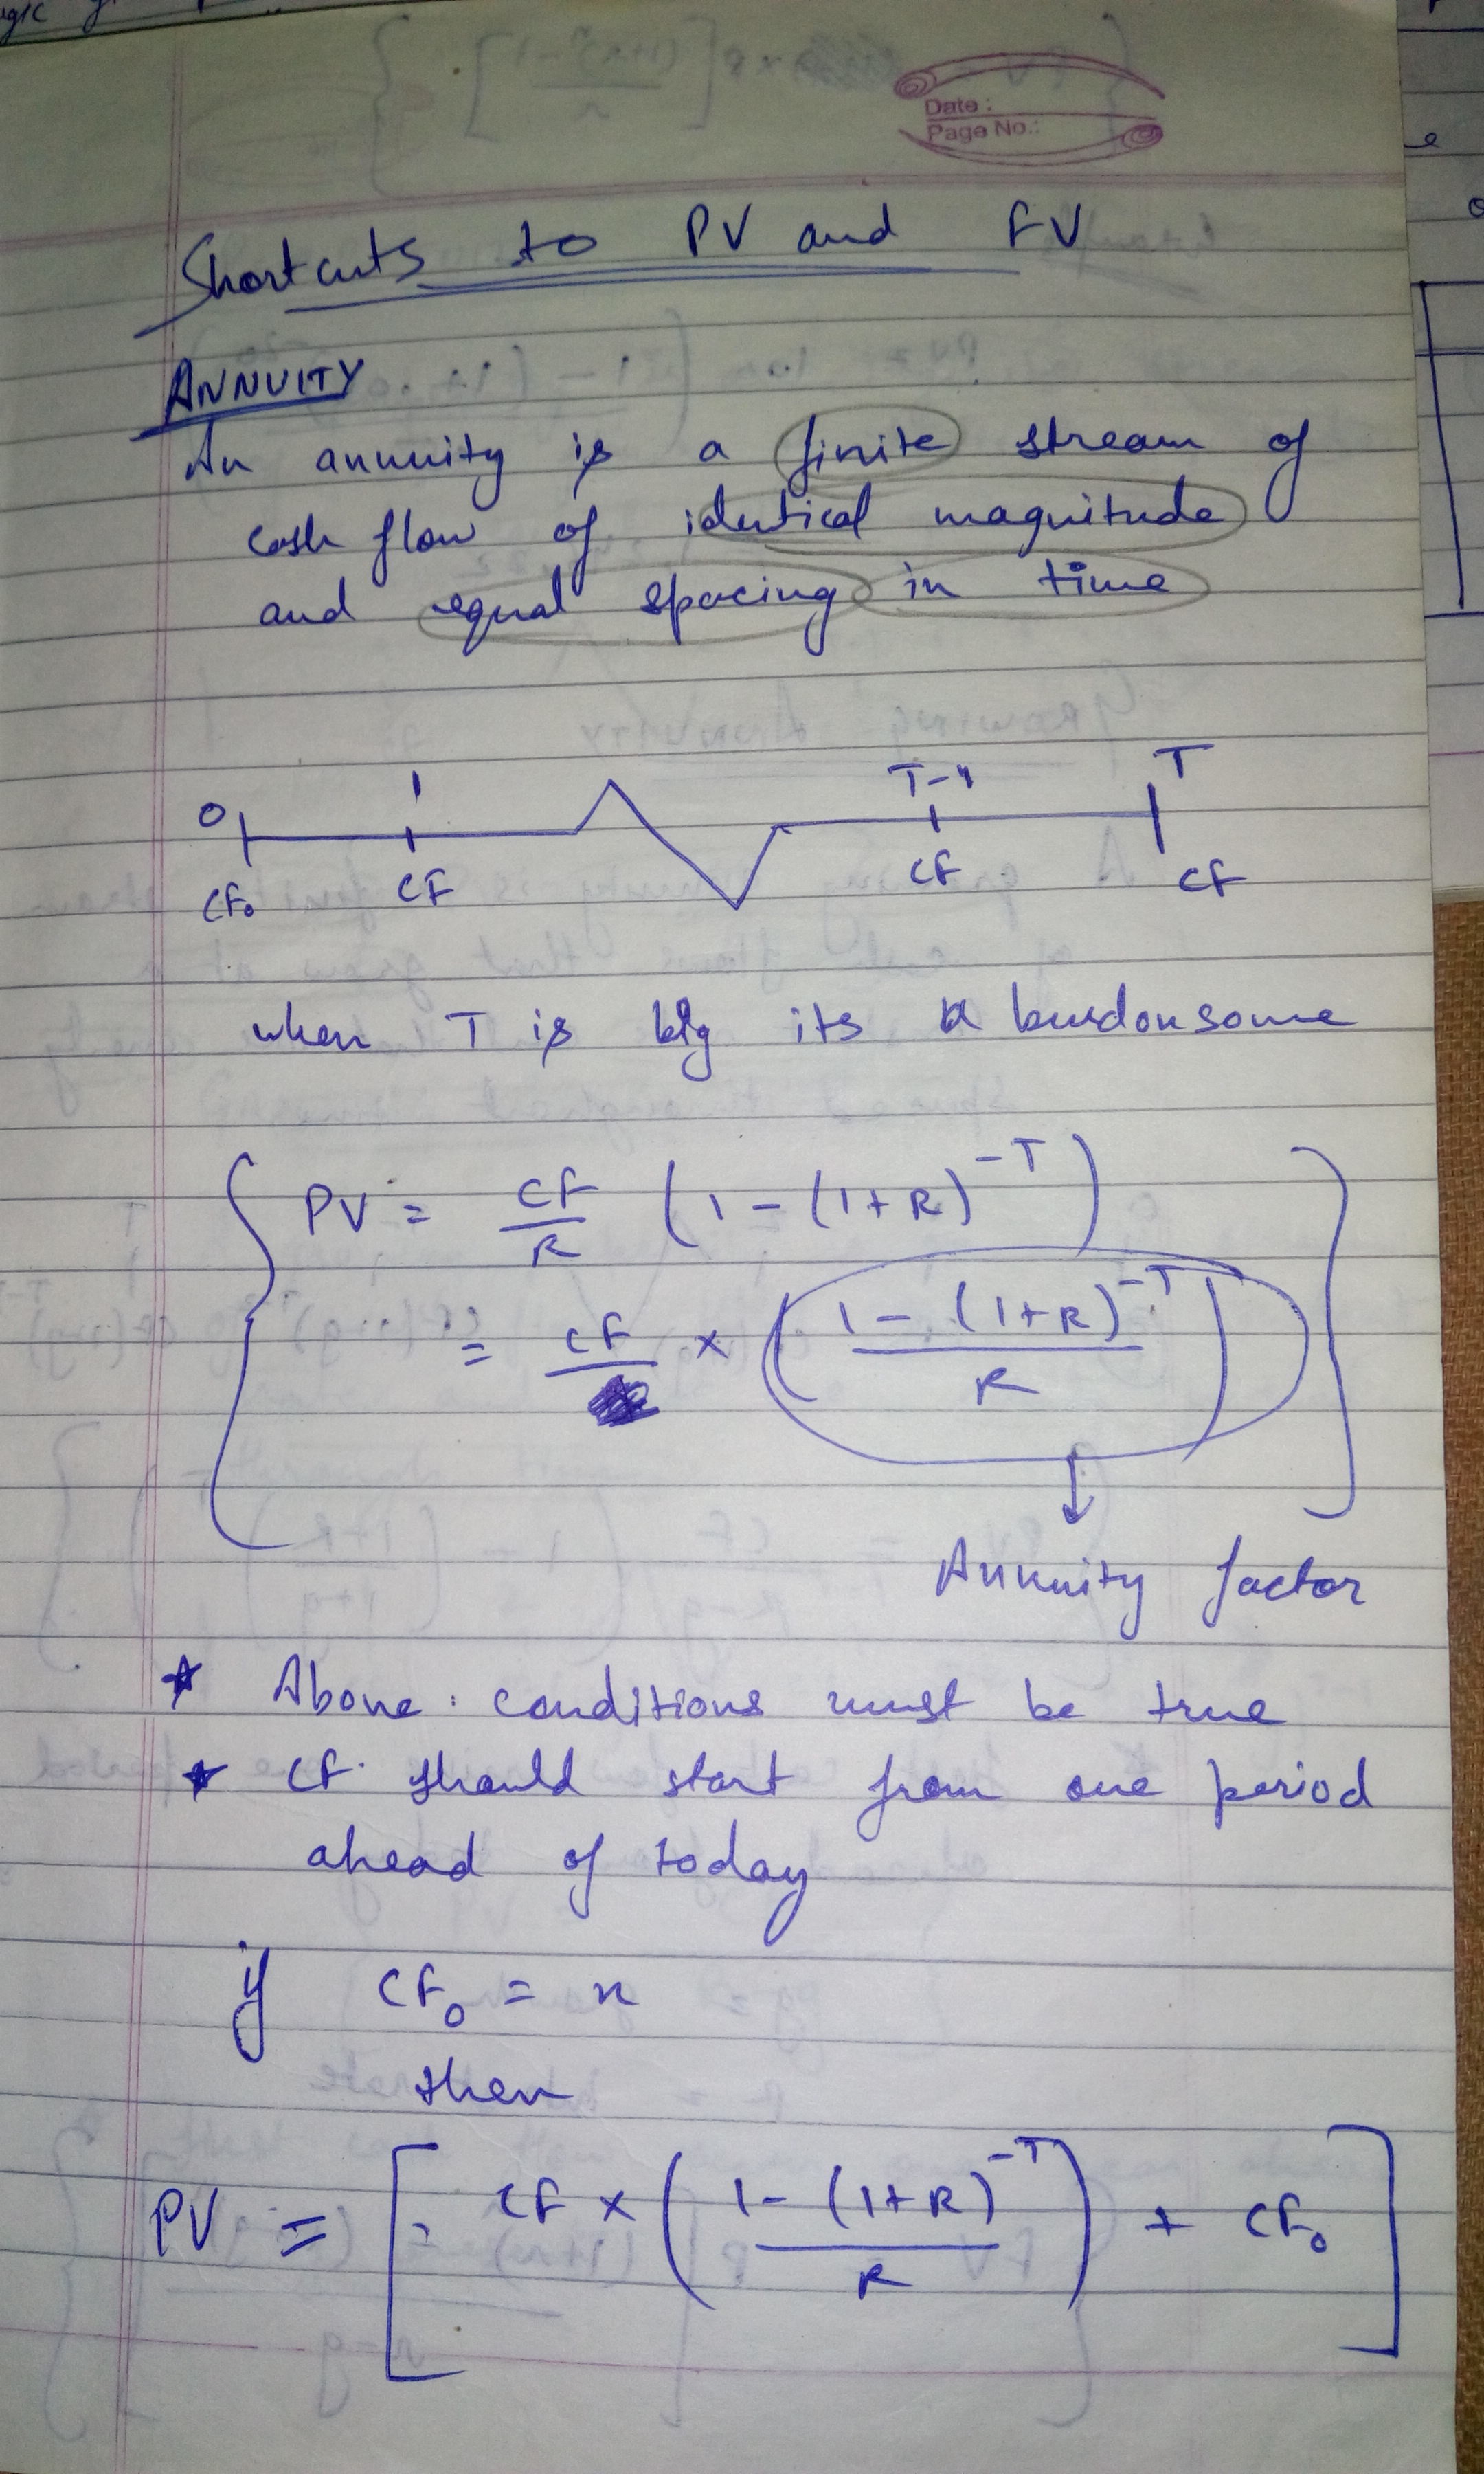 Date :
Page No.:
Shortcuts to PV and FV
ANNUITY
An annuity is a finite stream of
cash flow of identical magnitude
and equal spacing in time
0 1 T-1 T
CF₀ CF CF CF
when T is big its a burdonsome
PV = CF/R (1 - (1+R)^-T)
= CF × (1 - (1+R)^-T / R)
Annuity factor
* Above conditions must be true
* CF should start from one period
ahead of today
if CF₀ = x
then
PV = [ CF × (1 - (1+R)^-T / R) + CF₀ ]